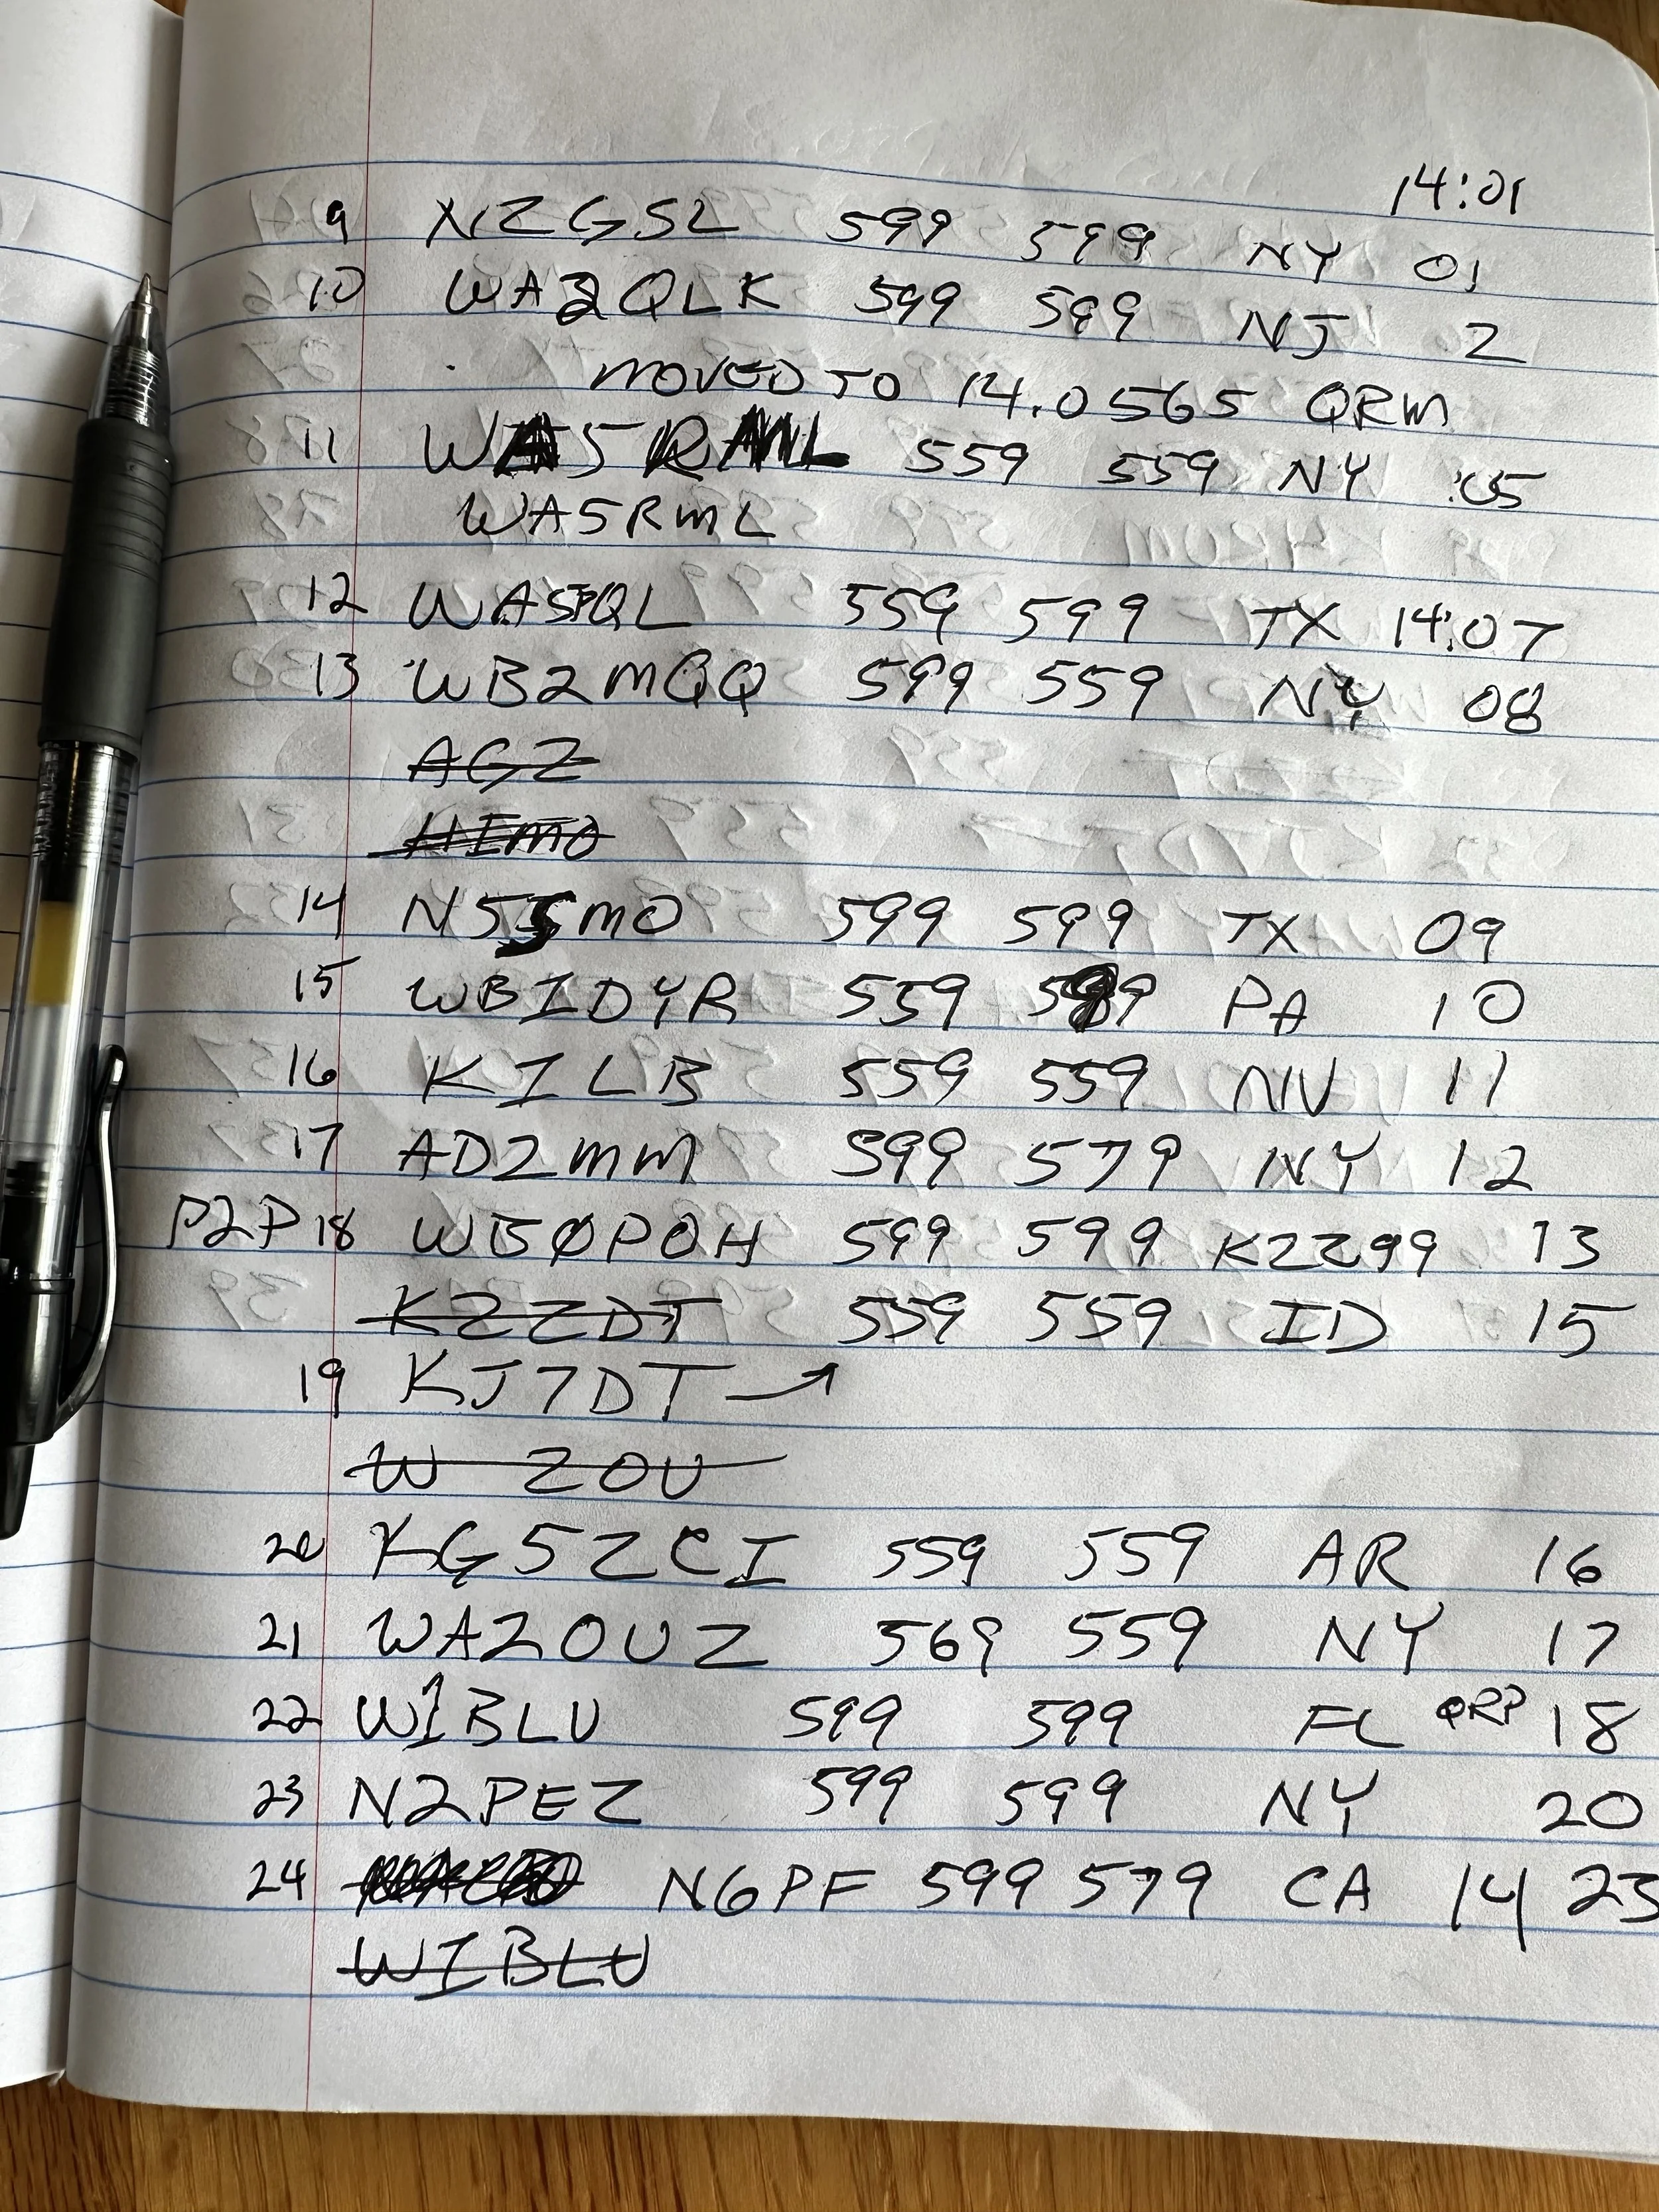 14:01
9 N2GSL 599 599 NY 01
10 WA2QLK 599 599 NJ 2
MOVED TO 14.0565 QRM
11 559 559 NY :05
WA5RML
12 559 599 TX 14:07
13 WB2MQQ 599 559 NY 08
AGZ
HIMO
14 599 599 TX 09
15 WB1DYR 559 PA 10
16 K1LB 559 559 NV 11
17 AD2MM 599 579 NY 12
P2P 18 WB0POH 599 599 K2299 13
K2ZDT 559 559 ID 15
19 KJ7DT →
W ZOU
20 KG5ZCI 559 559 AR 16
21 WA2OUZ 569 559 NY 17
22 W1BLU 599 599 FL QRP 18
23 N2PEZ 599 599 NY 20
24 N6PF 599 579 CA 14 23
W1BLU